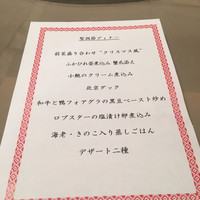 聖夜節ディナー
前菜盛り合わせ“クリスマス風”
ふかひれ姿煮込み 蟹爪添え
小鮑のクリーム煮込み
北京ダック
和牛と鴨フォアグラの黒豆ペースト炒め
ロブスターの塩漬け卵煮込み
海老・きのこ入り蒸しごはん
デザート二種